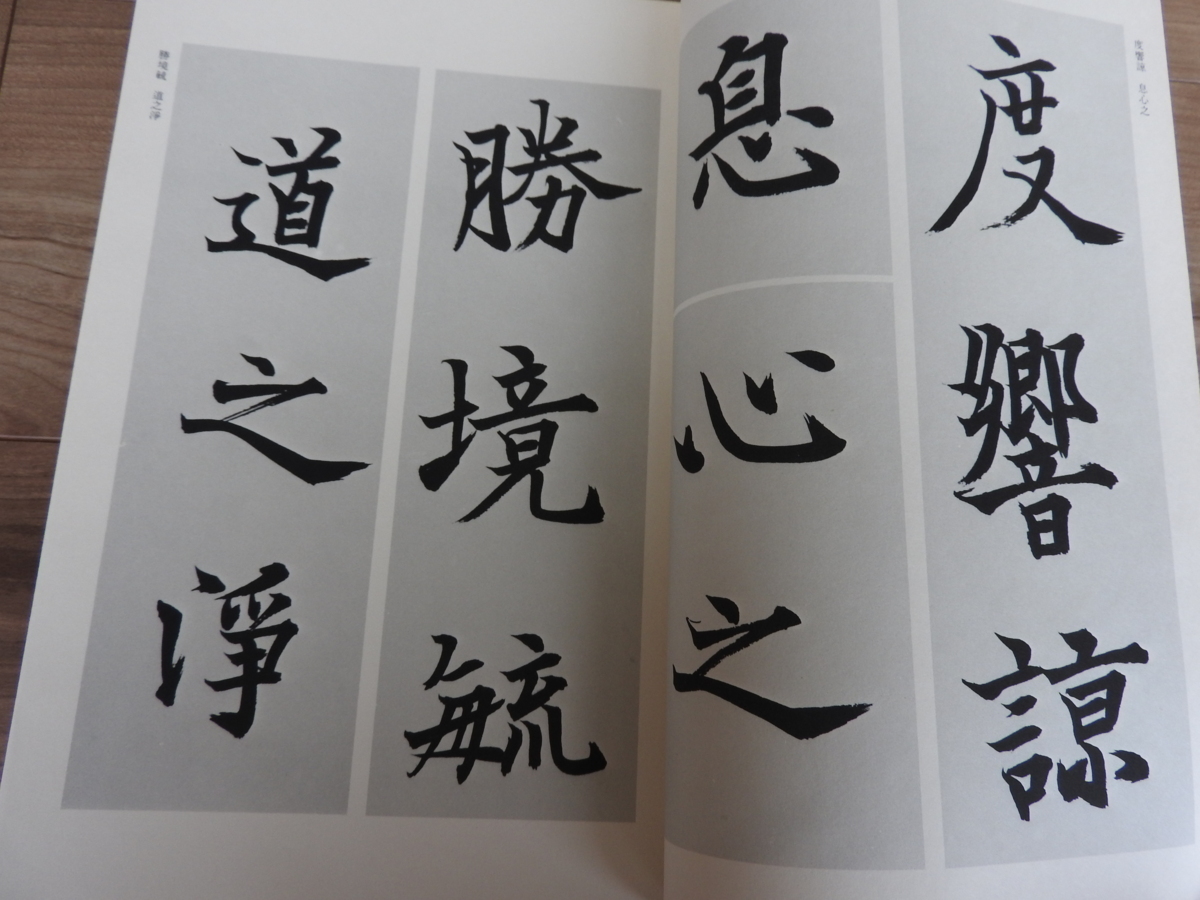 度響諒 息心之
度響諒
息心之
勝境毓
道之淨
勝境毓 道之淨